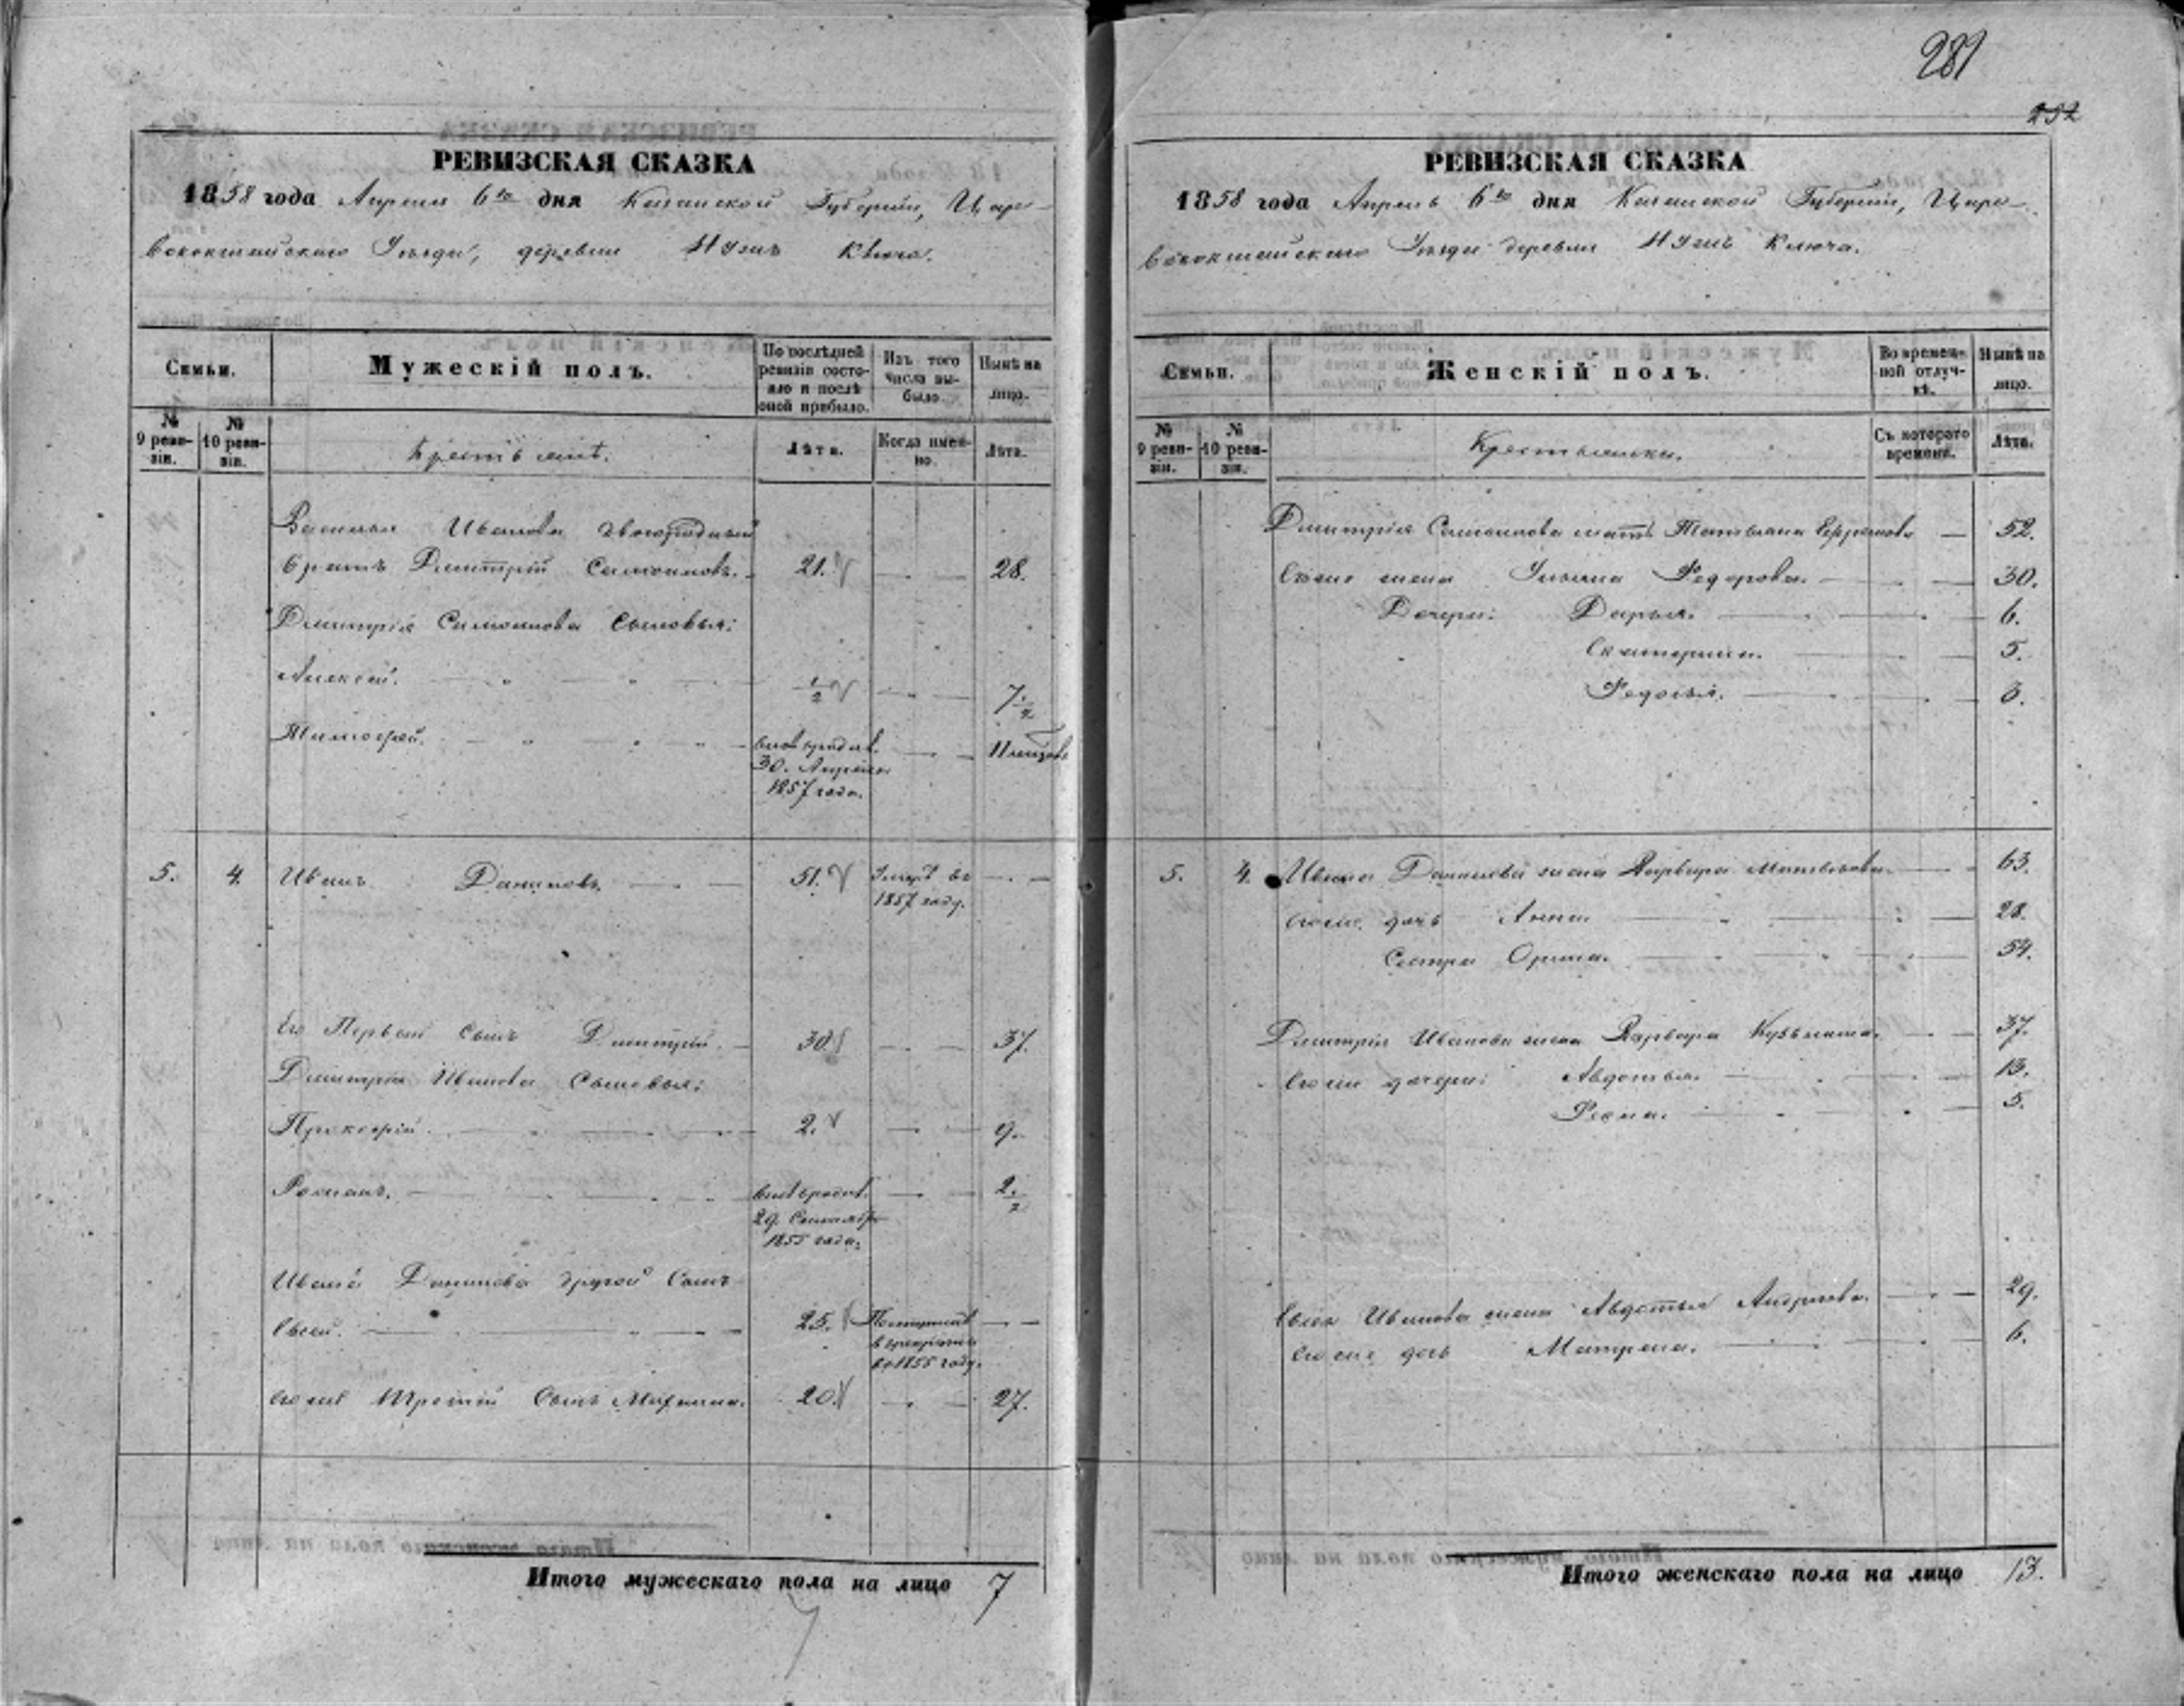 281
252
РЕВИЗСКАЯ СКАЗКА
1858 года Апреля 6го дня Казанской Губерніи, Царе-
вококшайскаго Уѣзда, деревни Ключа.
Семьи.
Мужескій полъ.
По послѣдней ревизіи состояло и послѣ оной прибыло.
Изъ того числа выбыло.
Нынѣ на лицо.
№ 9 ревизіи.
№ 10 ревизіи.
Крестьяне.
Лѣта.
Когда именно.
Лѣта.
Василья Иванова двоюродный
братъ Дмитрій Самойловъ. 21. 28.
Дмитрія Самойлова сыновья:
Алексѣй. 1/2 7 1/2
Тимофей. 30. Апрѣля 1857 года.
5. 4. Иванъ Даниловъ. 51. Умеръ въ 1857 году.
Его Первый сынъ Дмитрій. 30. 37.
Дмитрія Иванова Сыновья:
Прокофій. 2. 9.
Романъ. 29. Сентября 1855 года. 2 1/2
Ивана Данилова другой Сынъ
Евсей. 25. въ 1855 году.
Его же Третій Сынъ Михаила. 20. 27.
Итого мужескаго пола на лицо 7
РЕВИЗСКАЯ СКАЗКА
1858 года Апреля 6го дня Казанской Губерніи, Царе-
вококшайскаго Уѣзда деревни Ключа.
Семьи.
Женскій полъ.
Во временной отлучкѣ.
Нынѣ на лицо.
№ 9 ревизіи.
№ 10 ревизіи.
Крестьянки.
Съ котораго времени.
Лѣта.
Дмитрія Самойлова мать Татьяна Ефремова 52.
Его же жена Ульяна Федорова. 30.
Дочери: Дарья. 6.
Екатерина. 5.
Федосья. 3.
5. 4. Ивана Данилова жена Варвара Матвѣева 63.
Его же дочь Анна 28.
Сестра Орина. 54.
Дмитрія Иванова жена Варвара Кузьмина. 37.
Его же дочери: Авдотья. 13.
Фекла. 5.
Евсея Иванова жена Авдотья Андреева. 29.
Его же дочь Матрена. 6.
Итого женскаго пола на лицо 13.